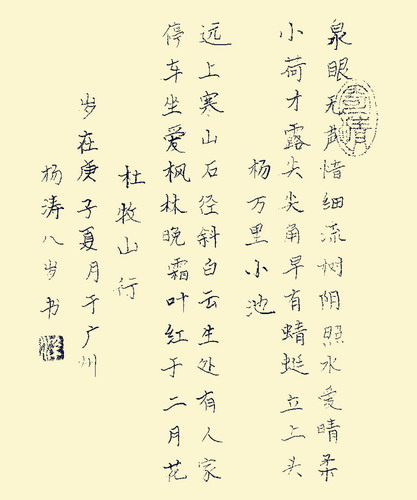 泉眼无声惜细流树阴照水爱晴柔
小荷才露尖尖角早有蜻蜓立上头
杨万里小池
远上寒山石径斜白云生处有人家
停车坐爱枫林晚霜叶红于二月花
杜牧山行
岁在庚子夏月于广州
杨涛八岁书